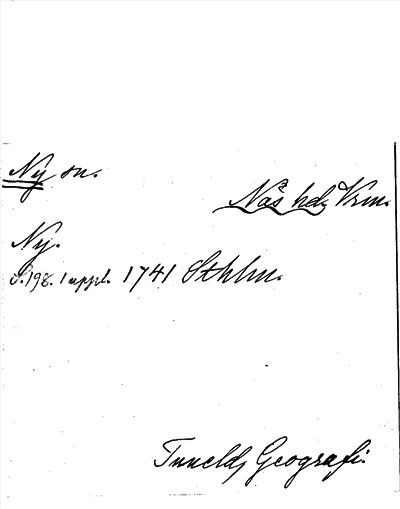 Ny sn.
Näs hd, Vrm.
Ny.
S. 198. 1 uppl. 1741 Sthlm.
Tunelds Geografi.